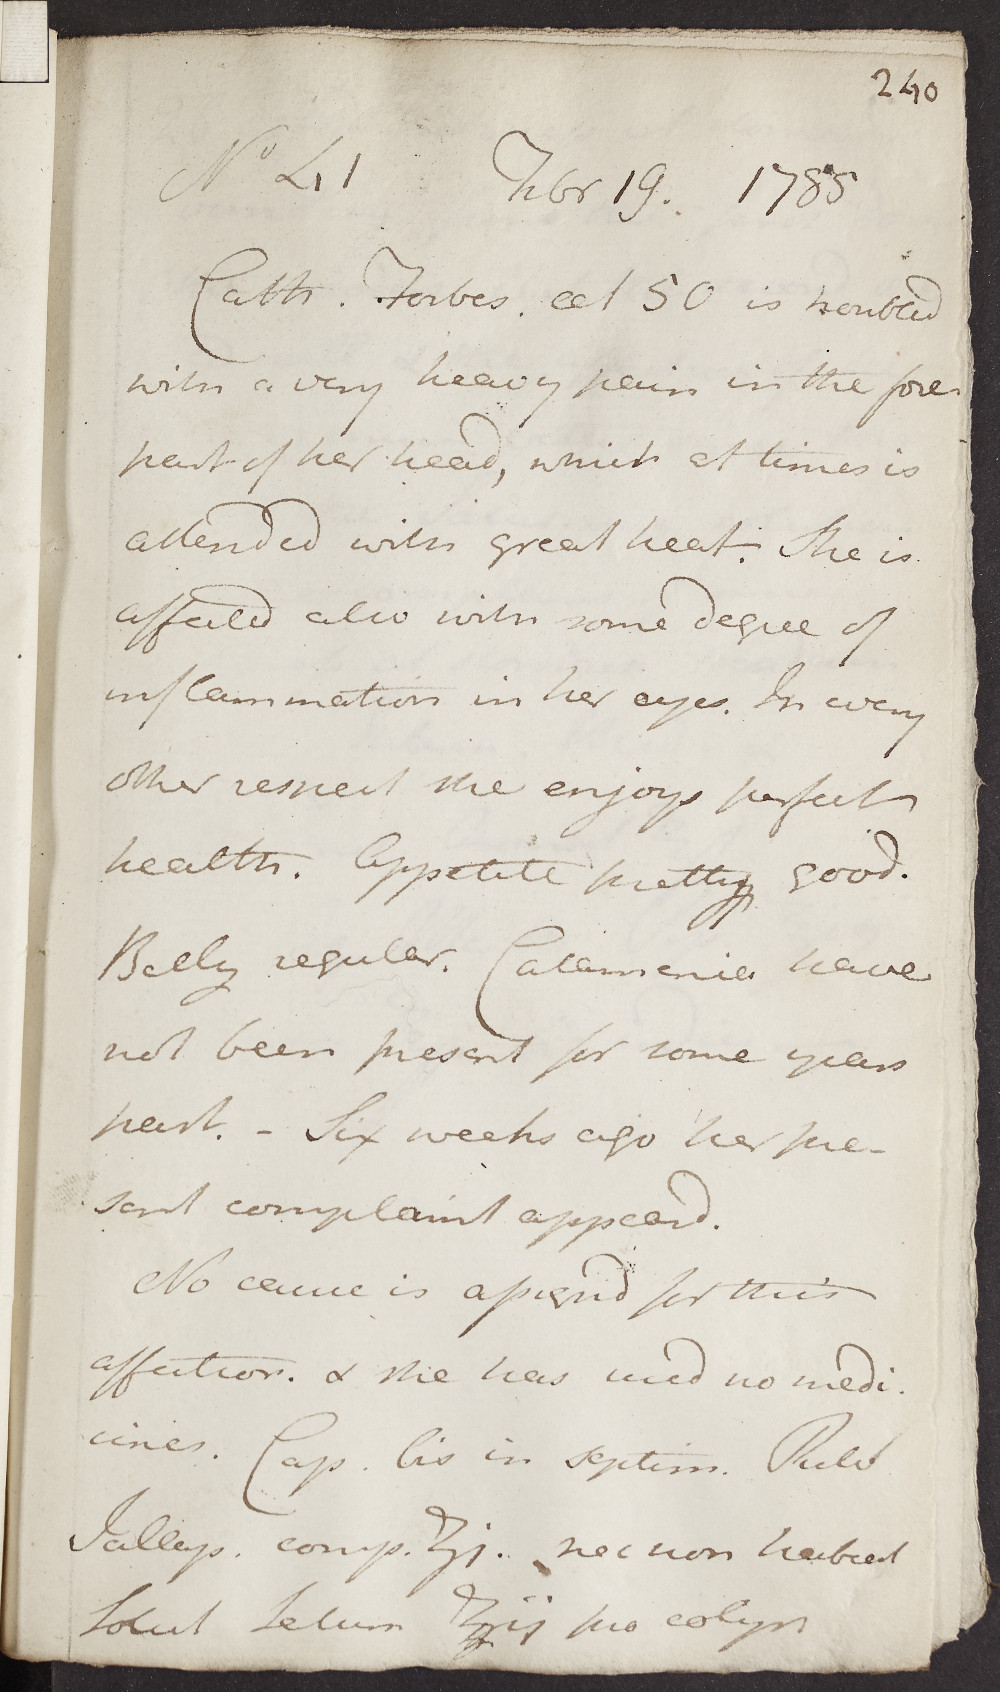 240
No 41 Febr 19. 1785
Cath. Forbes. aet 50 is troubled
with a very heavy pain in the fore
part of her head, which at times is
attended with great heat. She is
affected also with some degree of
inflammation in her eyes. In every
other respect she enjoys perfect
health. Appetite pretty good.
Belly regular. Catamenia have
not been present for some years
past. - Six weeks ago her pre-
sent complaint appeard.
No cause is assignd for this
affection. & she has used no medi
cines. Cap. bis in septim. Pulv
Jallap. comp. ʒj. nec non habeat
Solut pro collyr